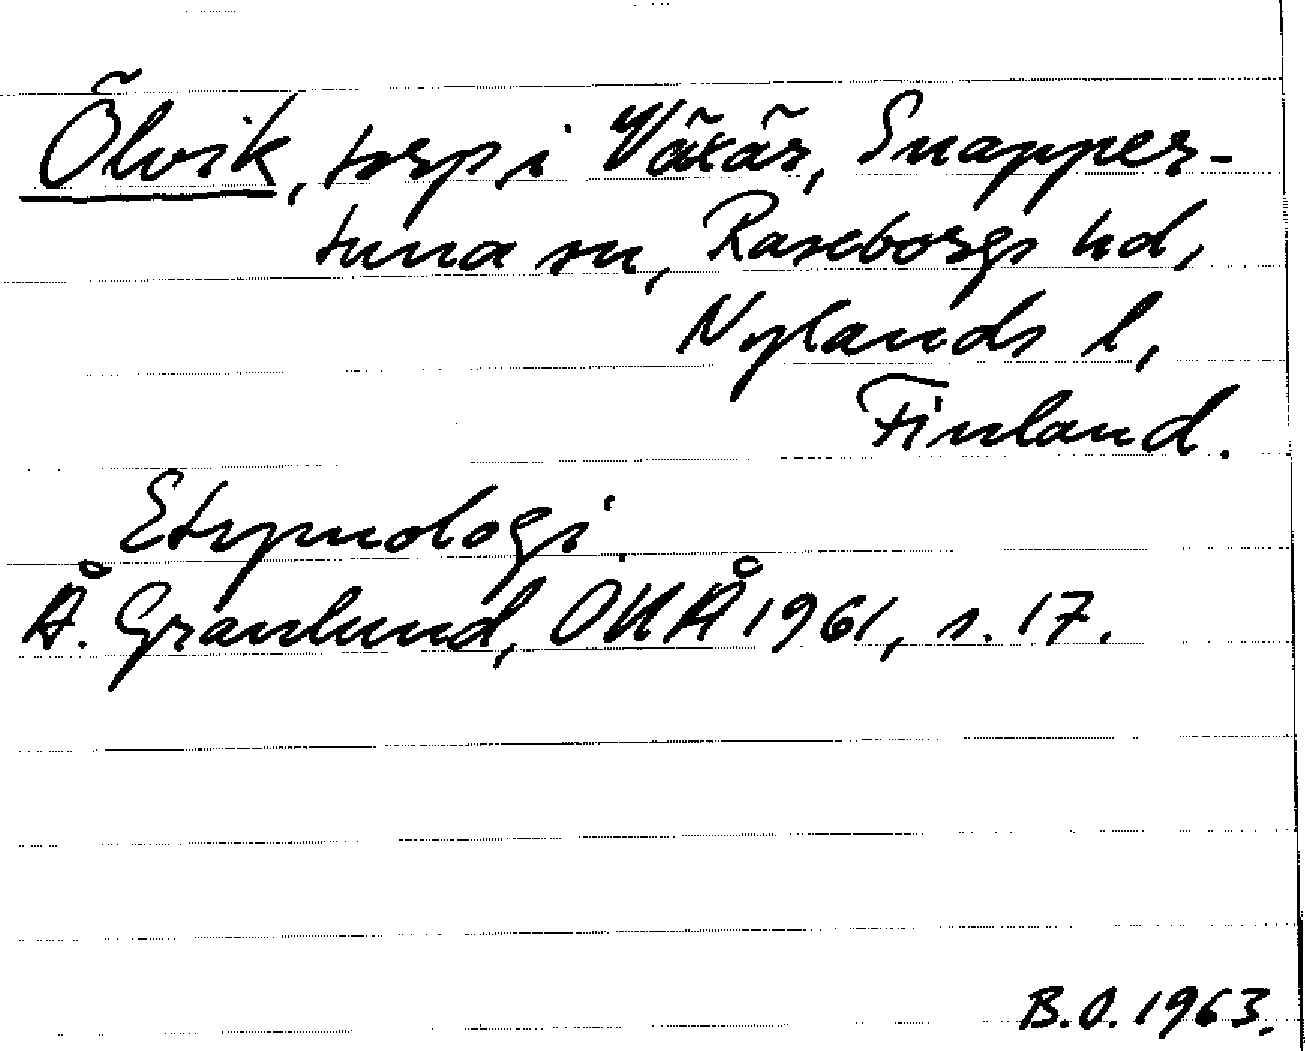 Ölvik, torp i Växär, Snapper-
tuna sn, Raseborgs hd,
Nylands l,
Finland.
Etymologi.
Å. Granlund, OUÅ 1961, s. 17.
B.O. 1963.